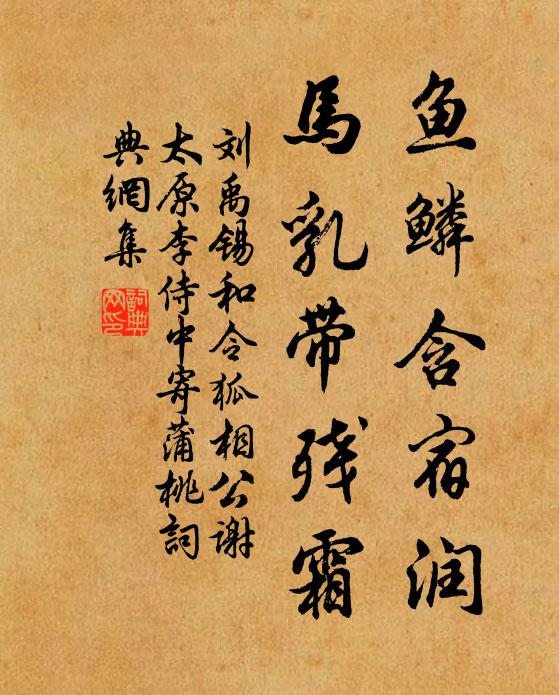 鱼鳞含宿润
馬乳带残霜
刘禹锡和令狐相公谢
太原李侍中寄蒲桃詞
典網集
詞典
网印